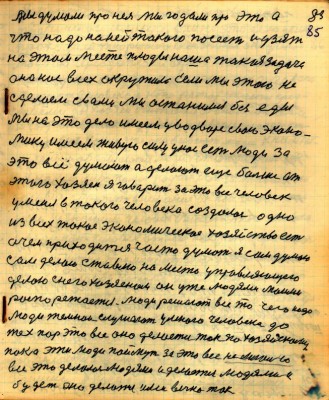 85
мы думали про нея мы гадали про это а
что надо на ней такого посеет и узят
на этом месте плоды наша такая задача
она нас всех окружила если мы этого не
сделаем с вами мы останимся без еды
мы на это дело имеем у водворе свою эконо-
мику имеем живую силу у нас ест люди за
это всё думают а делают еще болше от
этого хозяен я говарит за это все человек
умения в такого человека создалос одно
из всех такое экономическое хозяйство ест
о чем приходится часто думат я сам думаю
сам делаю ставлю на место управляющего
делаю с него хозяином он уже людями моими
роспоряжается. люди решают все то чего надо
люди темнои слушают умного человека до
тех пор это все оно делается так по хозяйскому
пока эти люди поймут за это все не
все это делалос людями и делается людями и
будет оно делатся имя вечно так